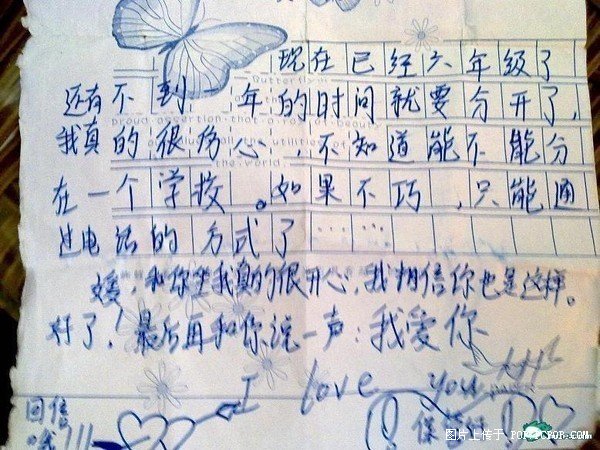 现在已经六年级了
还有不到一年的时间就要分开了,
我真的很伤心,不知道能不能分
在一个学校。如果不巧,只能通
过电话的方式了……
媛,和你坐我真的很开心,我相信你也是这样。
好了!最后再和你说一声:我爱你
I love you
回信
哦!!!
保
图片上传于 POPCPOP.COM